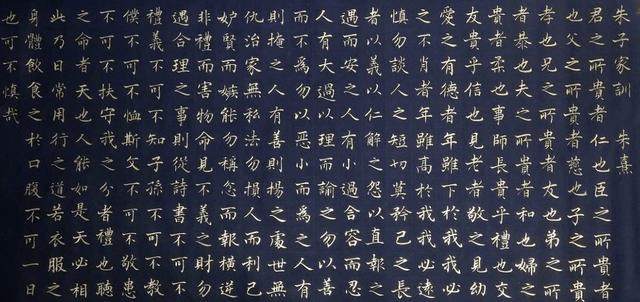 朱子家訓 朱熹
君之所貴者仁也臣之所貴者
也父之所貴者慈也子之所貴
孝也兄之所貴者友也弟之所
者恭也夫之所貴者和也婦之
貴者柔也事師長貴乎禮也交
友貴乎信也見老者敬之見幼
愛之有德者年雖下於我我必
之不肖者年雖高於我我必遠
慎勿談人之短切莫矜己之長
者以義以仁解之怨以直報之
遇而安之人有小過含容而忍
人有大過以理而諭之勿以善
而不為勿以惡小而為之人有
則掩之人有善則揚之處世無
仇治家無私法勿損人而利己
妒賢而嫉能勿稱忿而報橫逆
非禮而害物命見不義之財勿
遇合理之事則從詩書不可不
禮義不可不知子孫不可不教
僕不可不恤斯文不可不敬患
不可不扶守我之分者禮也聽
之命者天也人能如是天必相
此乃日常用行之道若衣服之
身體飲食之於口腹不可一日
也可不慎哉